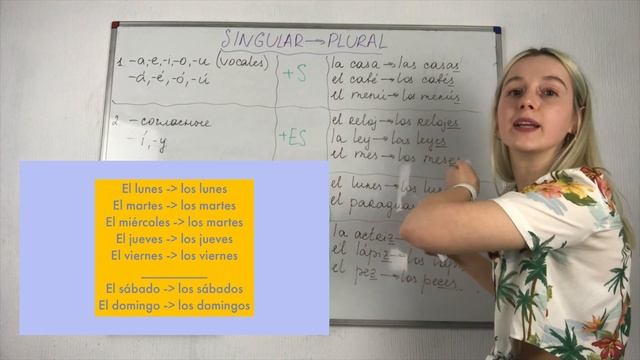 SINGULAR → PLURAL
1. -a,-e,-i,-o,-u (vocales)
-á,-é,-ó,-ú
+S
la casa → las casas
el café → los cafés
el menú → los menús
2. -согласные
-í,-y
+ES
el reloj → los relojes
la ley → las leyes
el mes → los meses
el lunes → los
el
la actriz
el lápiz
el pez → los peces
El lunes -> los lunes
El martes -> los martes
El miércoles -> los martes
El jueves -> los jueves
El viernes -> los viernes
El sábado -> los sábados
El domingo -> los domingos